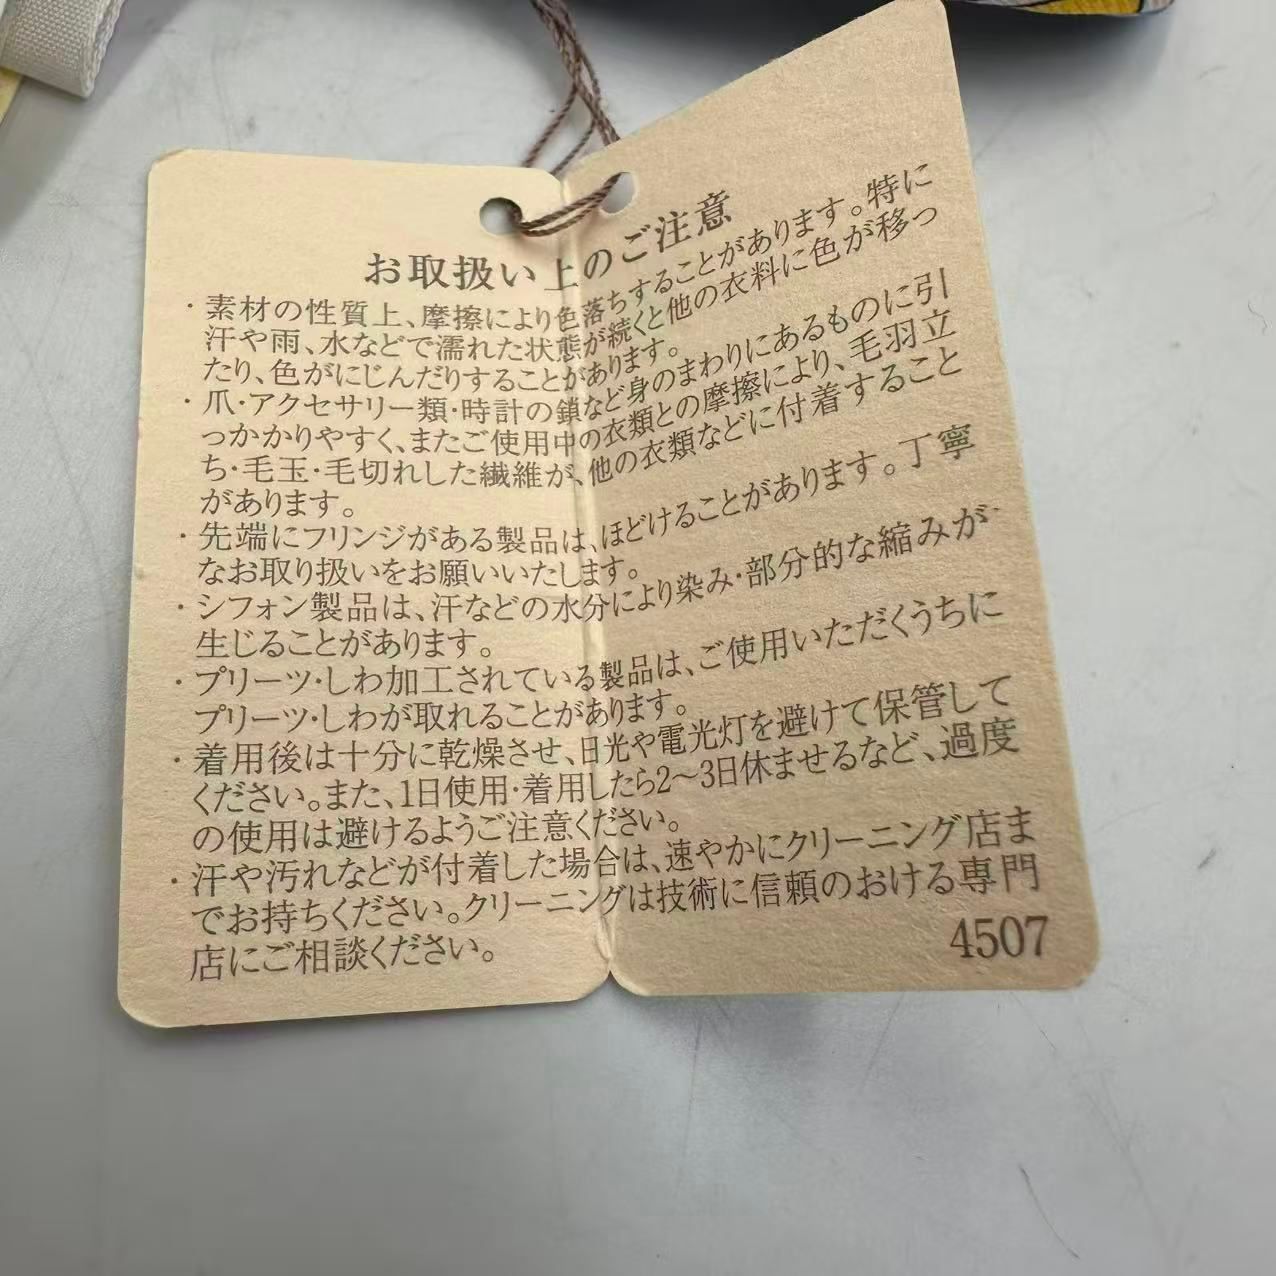 お取扱い上のご注意
・素材の性質上、摩擦により色落ちすることがあります。特に
汗や雨、水などで濡れた状態が続くと他の衣料に色が移っ
たり、色がにじんだりすることがあります。
・爪・アクセサリー類・時計の鎖など身のまわりにあるものに引
っかかりやすく、またご使用中の衣類との摩擦により、毛羽立
ち・毛玉・毛切れした繊維が、他の衣類などに付着すること
があります。
・先端にフリンジがある製品は、ほどけることがあります。丁寧
なお取り扱いをお願いいたします。
・シフォン製品は、汗などの水分により染み・部分的な縮みが
生じることがあります。
・プリーツ・しわ加工されている製品は、ご使用いただくうちに
プリーツ・しわが取れることがあります。
・着用後は十分に乾燥させ、日光や電光灯を避けて保管して
ください。また、1日使用・着用したら2〜3日休ませるなど、過度
の使用は避けるようご注意ください。
・汗や汚れなどが付着した場合は、速やかにクリーニング店ま
でお持ちください。クリーニングは技術に信頼のおける専門
店にご相談ください。
4507